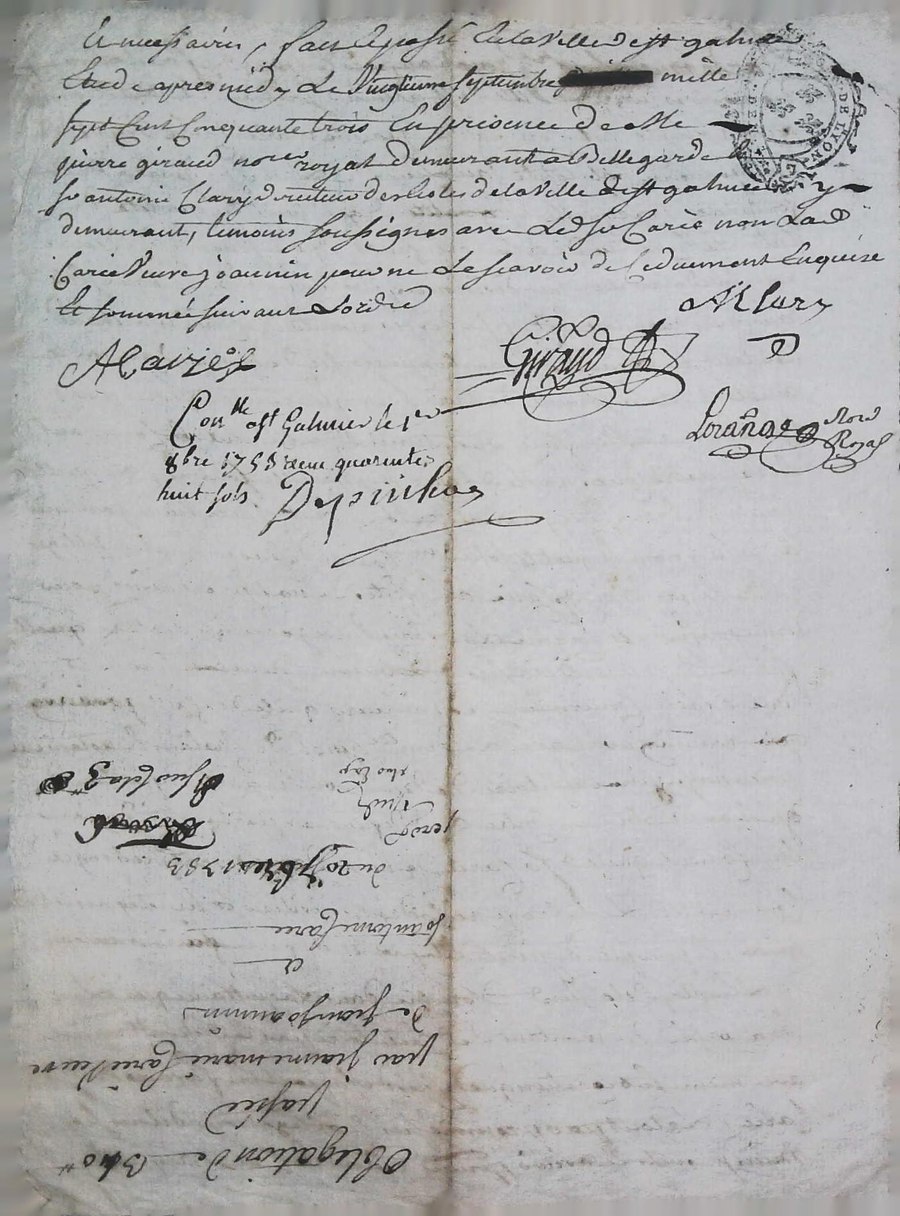 Et necessaires, fait et passé en la ville de st galmier
Etude apres midy le vingtieme septembre mille
sept cent cinquante trois En presence de Me
pierre giraud nore royal demeurant a Bellegarde
sr antoine Clary directeur des de la ville de st galmier y
demeurant, temoins soussignes avec led sr Carie non lad
Carie veuve joannin pour ne le scavoir de ce duement Enquise
Et sommée suivant Lordce
A Carie
Giraud
Con lle a St Galmier le 1er
8bre 1753 receu quarente
huit sols
Nore
Royal
Obligation de
passée
par jeanne marie Carie veuve
de jean Joannin
a
sr antoine Carie
du 20 7bre 1753